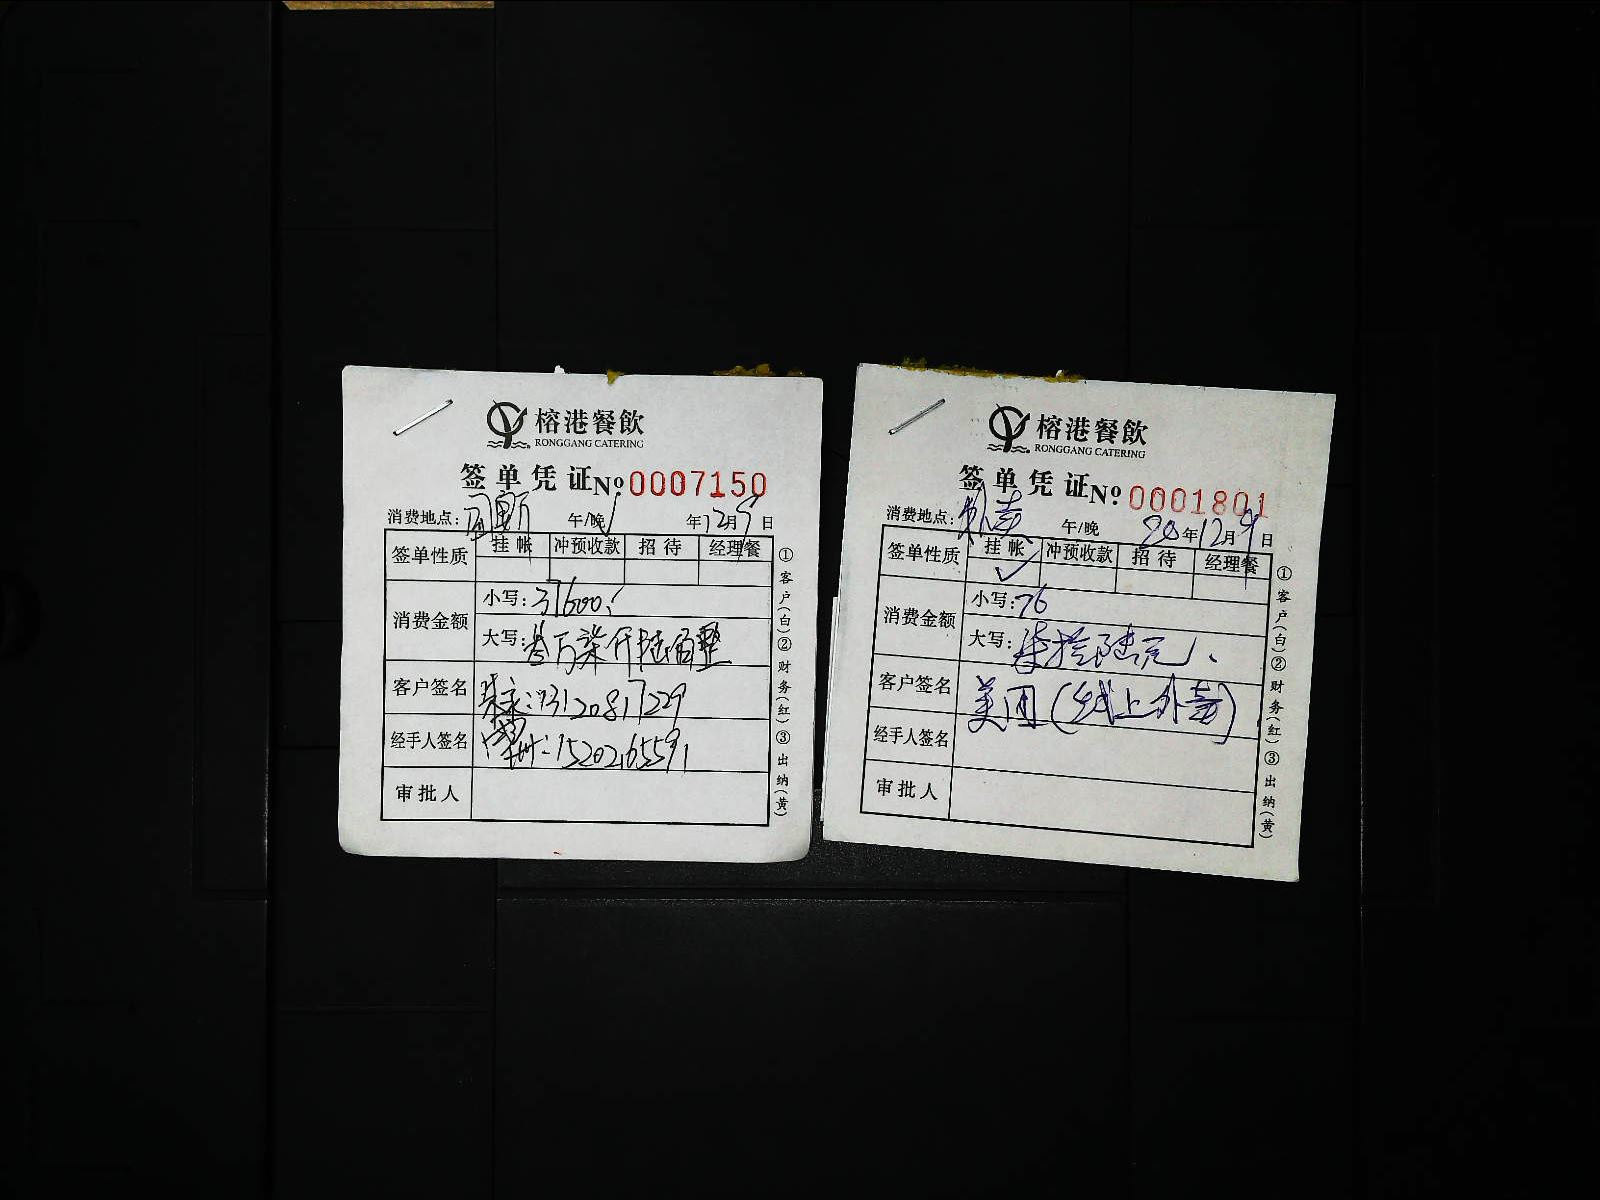 榕港餐飲
RONGGANG CATERING
签单凭证 № 0007150
消费地点: 午/晚 年12月9日
签单性质 挂帐 冲预收款 招待 经理餐
消费金额 小写: 37600
大写: 叁万柒仟陆佰整
客户签名 13120817229
经手人签名 15202165591
审批人
①客户(白)②财务(红)③出纳(黄)
榕港餐飲
RONGGANG CATERING
签单凭证 № 0001801
消费地点: 外卖 午/晚 20年12月9日
签单性质 挂帐 冲预收款 招待 经理餐
✓
消费金额 小写: 76
大写: 柒拾陆元
客户签名 美团(线上外卖)
经手人签名
审批人
①客户(白)②财务(红)③出纳(黄)